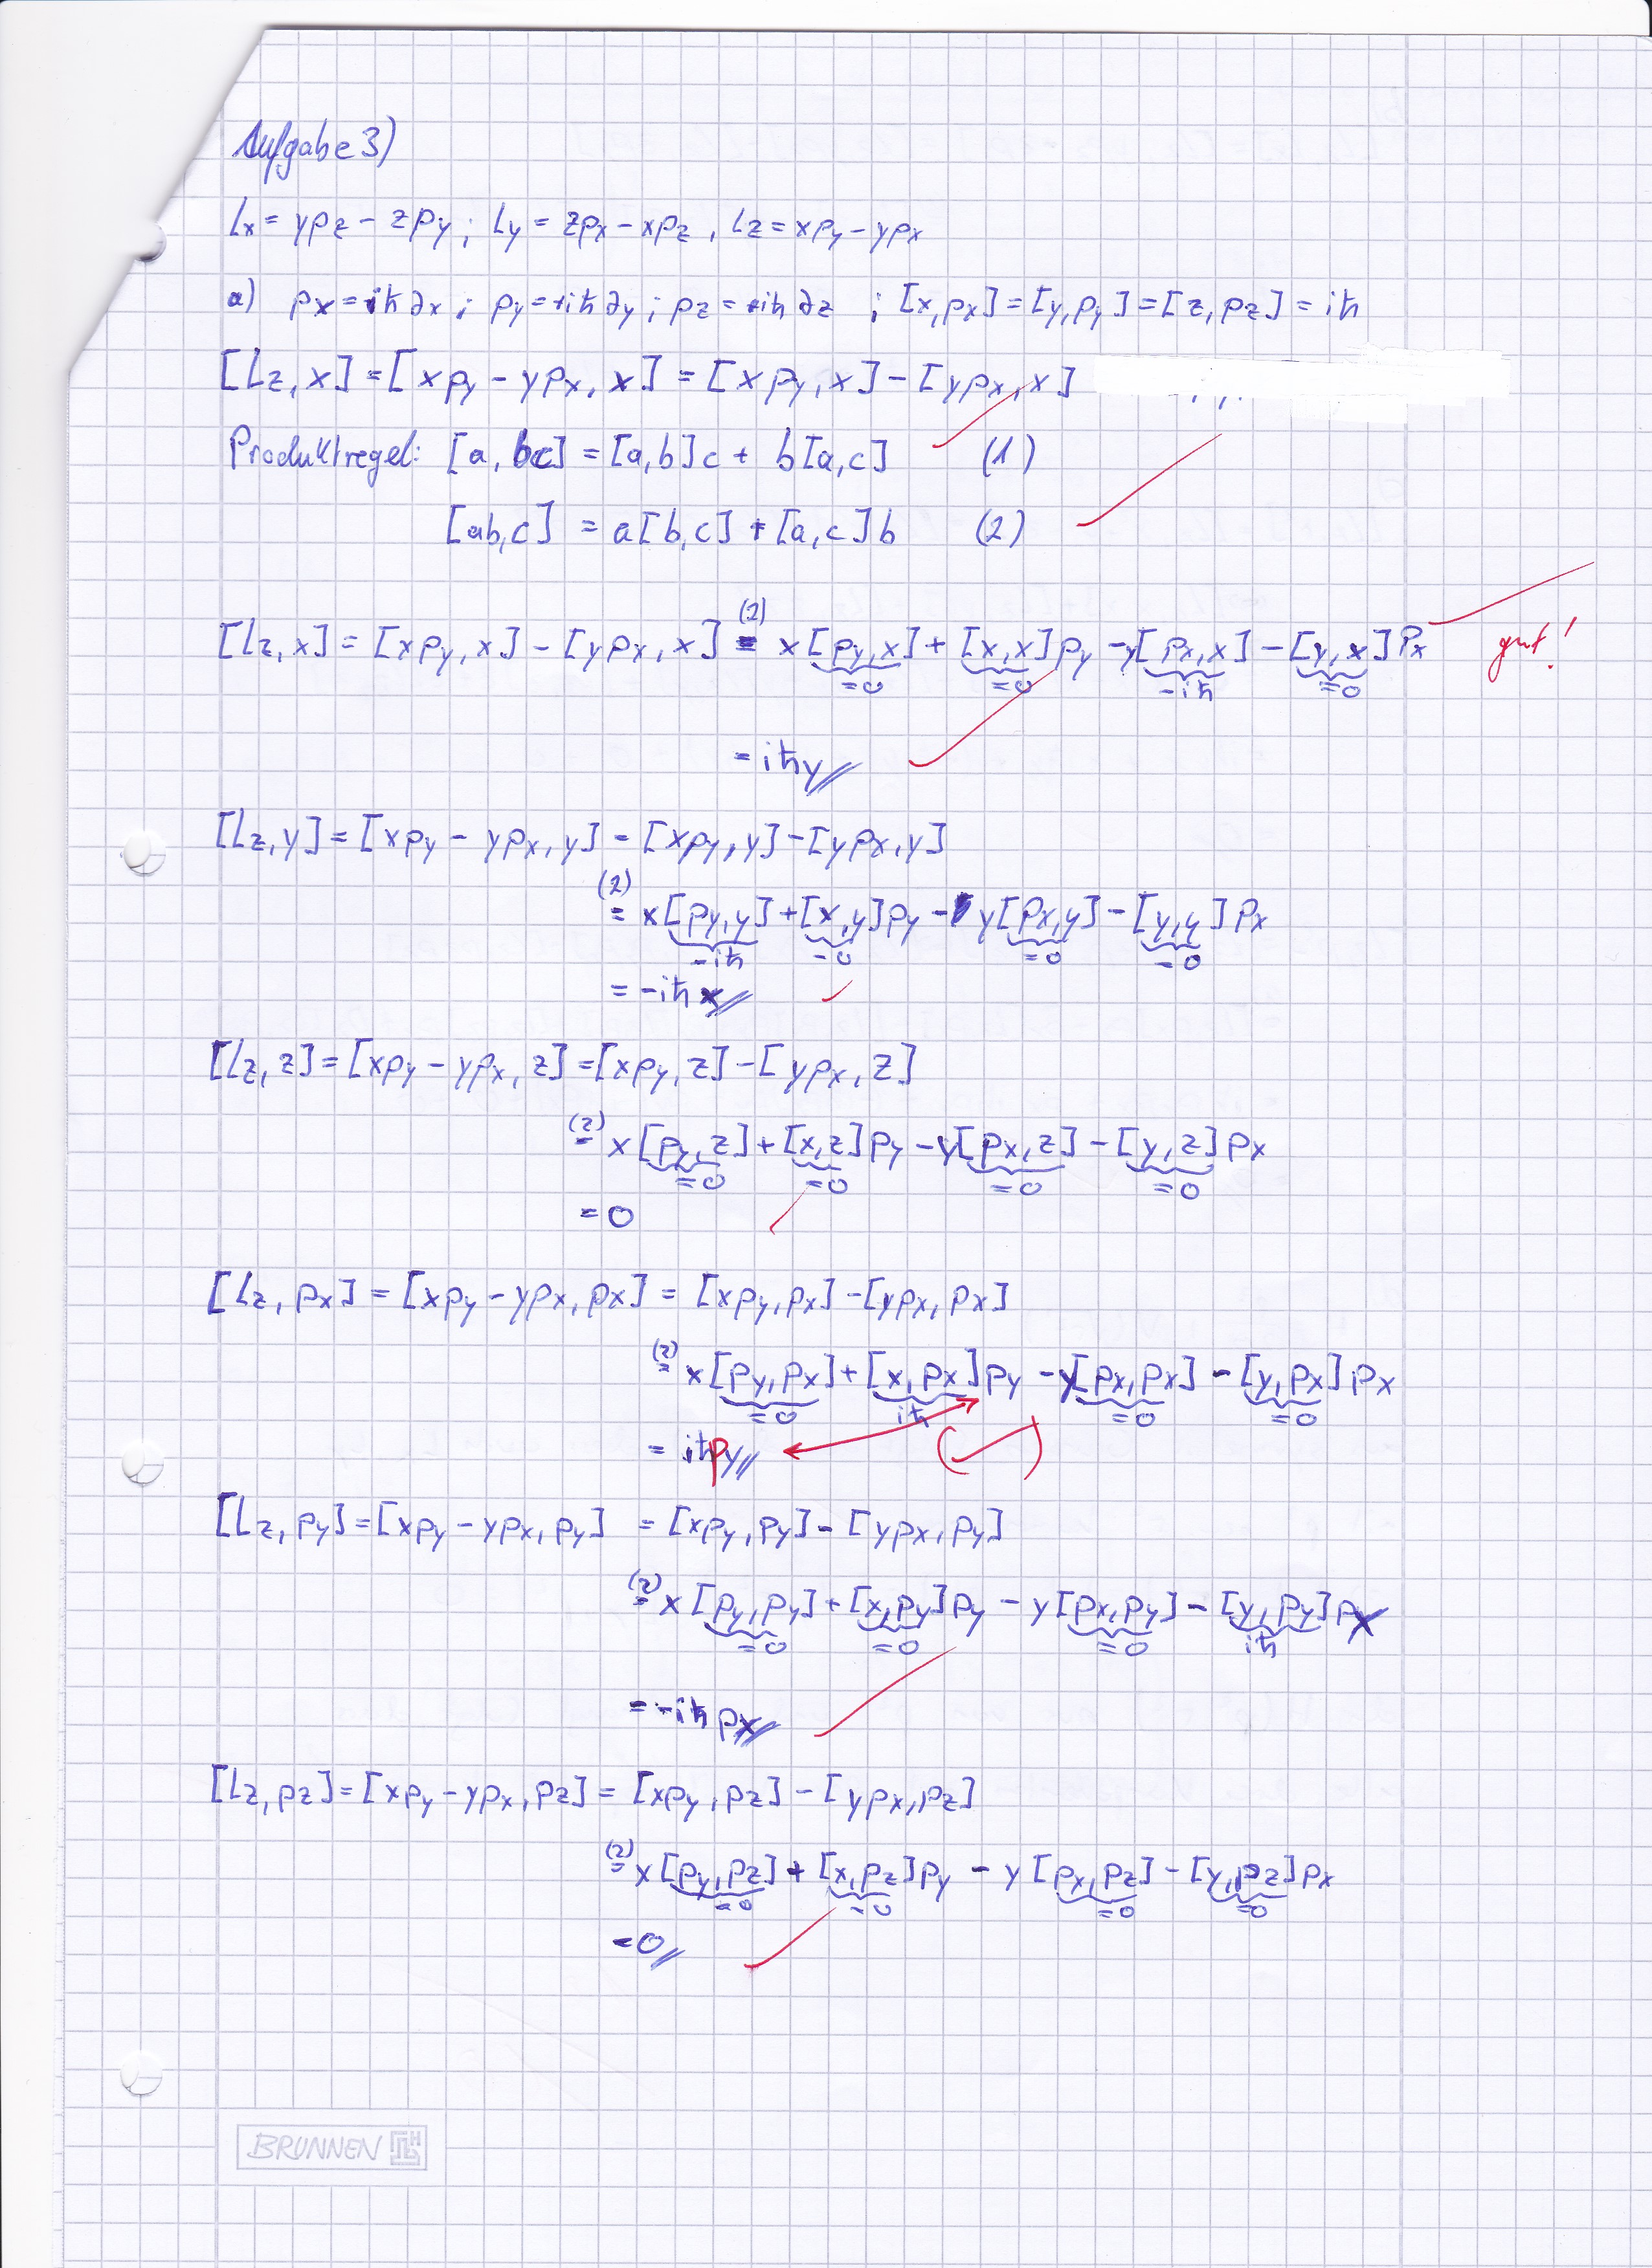 Aufgabe 3)
Lx = ypz - zpy ; Ly = zpx - xpz , Lz = xpy - ypx
a) px = iħ∂x ; py = iħ∂y ; pz = iħ∂z ; [x,px] = [y,py] = [z,pz] = iħ
[Lz,x] = [xpy - ypx, x] = [xpy,x] - [ypx,x]
Produktregel: [a,bc] = [a,b]c + b[a,c] (1)
[ab,c] = a[b,c] + [a,c]b (2)
(2)
[Lz,x] = [xpy,x] - [ypx,x] = x[py,x] + [x,x]py - y[px,x] - [y,x]px gut!
=0 =0 -iħ =0
= iħy
[Lz,y] = [xpy - ypx, y] = [xpy,y] - [ypx,y]
(2)
= x[py,y] + [x,y]py - y[px,y] - [y,y]px
-iħ =0 =0 =0
= -iħx
[Lz,z] = [xpy - ypx, z] = [xpy,z] - [ypx,z]
(2)
= x[py,z] + [x,z]py - y[px,z] - [y,z]px
=0 =0 =0 =0
= 0
[Lz,px] = [xpy - ypx, px] = [xpy,px] - [ypx,px]
(2)
= x[py,px] + [x,px]py - y[px,px] - [y,px]px
=0 iħ =0 =0
= iħpy
[Lz,py] = [xpy - ypx, py] = [xpy,py] - [ypx,py]
(2)
= x[py,py] + [x,py]py - y[px,py] - [y,py]px
=0 =0 =0 iħ
= -iħpx
[Lz,pz] = [xpy - ypx, pz] = [xpy,pz] - [ypx,pz]
(2)
= x[py,pz] + [x,pz]py - y[px,pz] - [y,pz]px
=0 =0 =0 =0
= 0
BRUNNEN